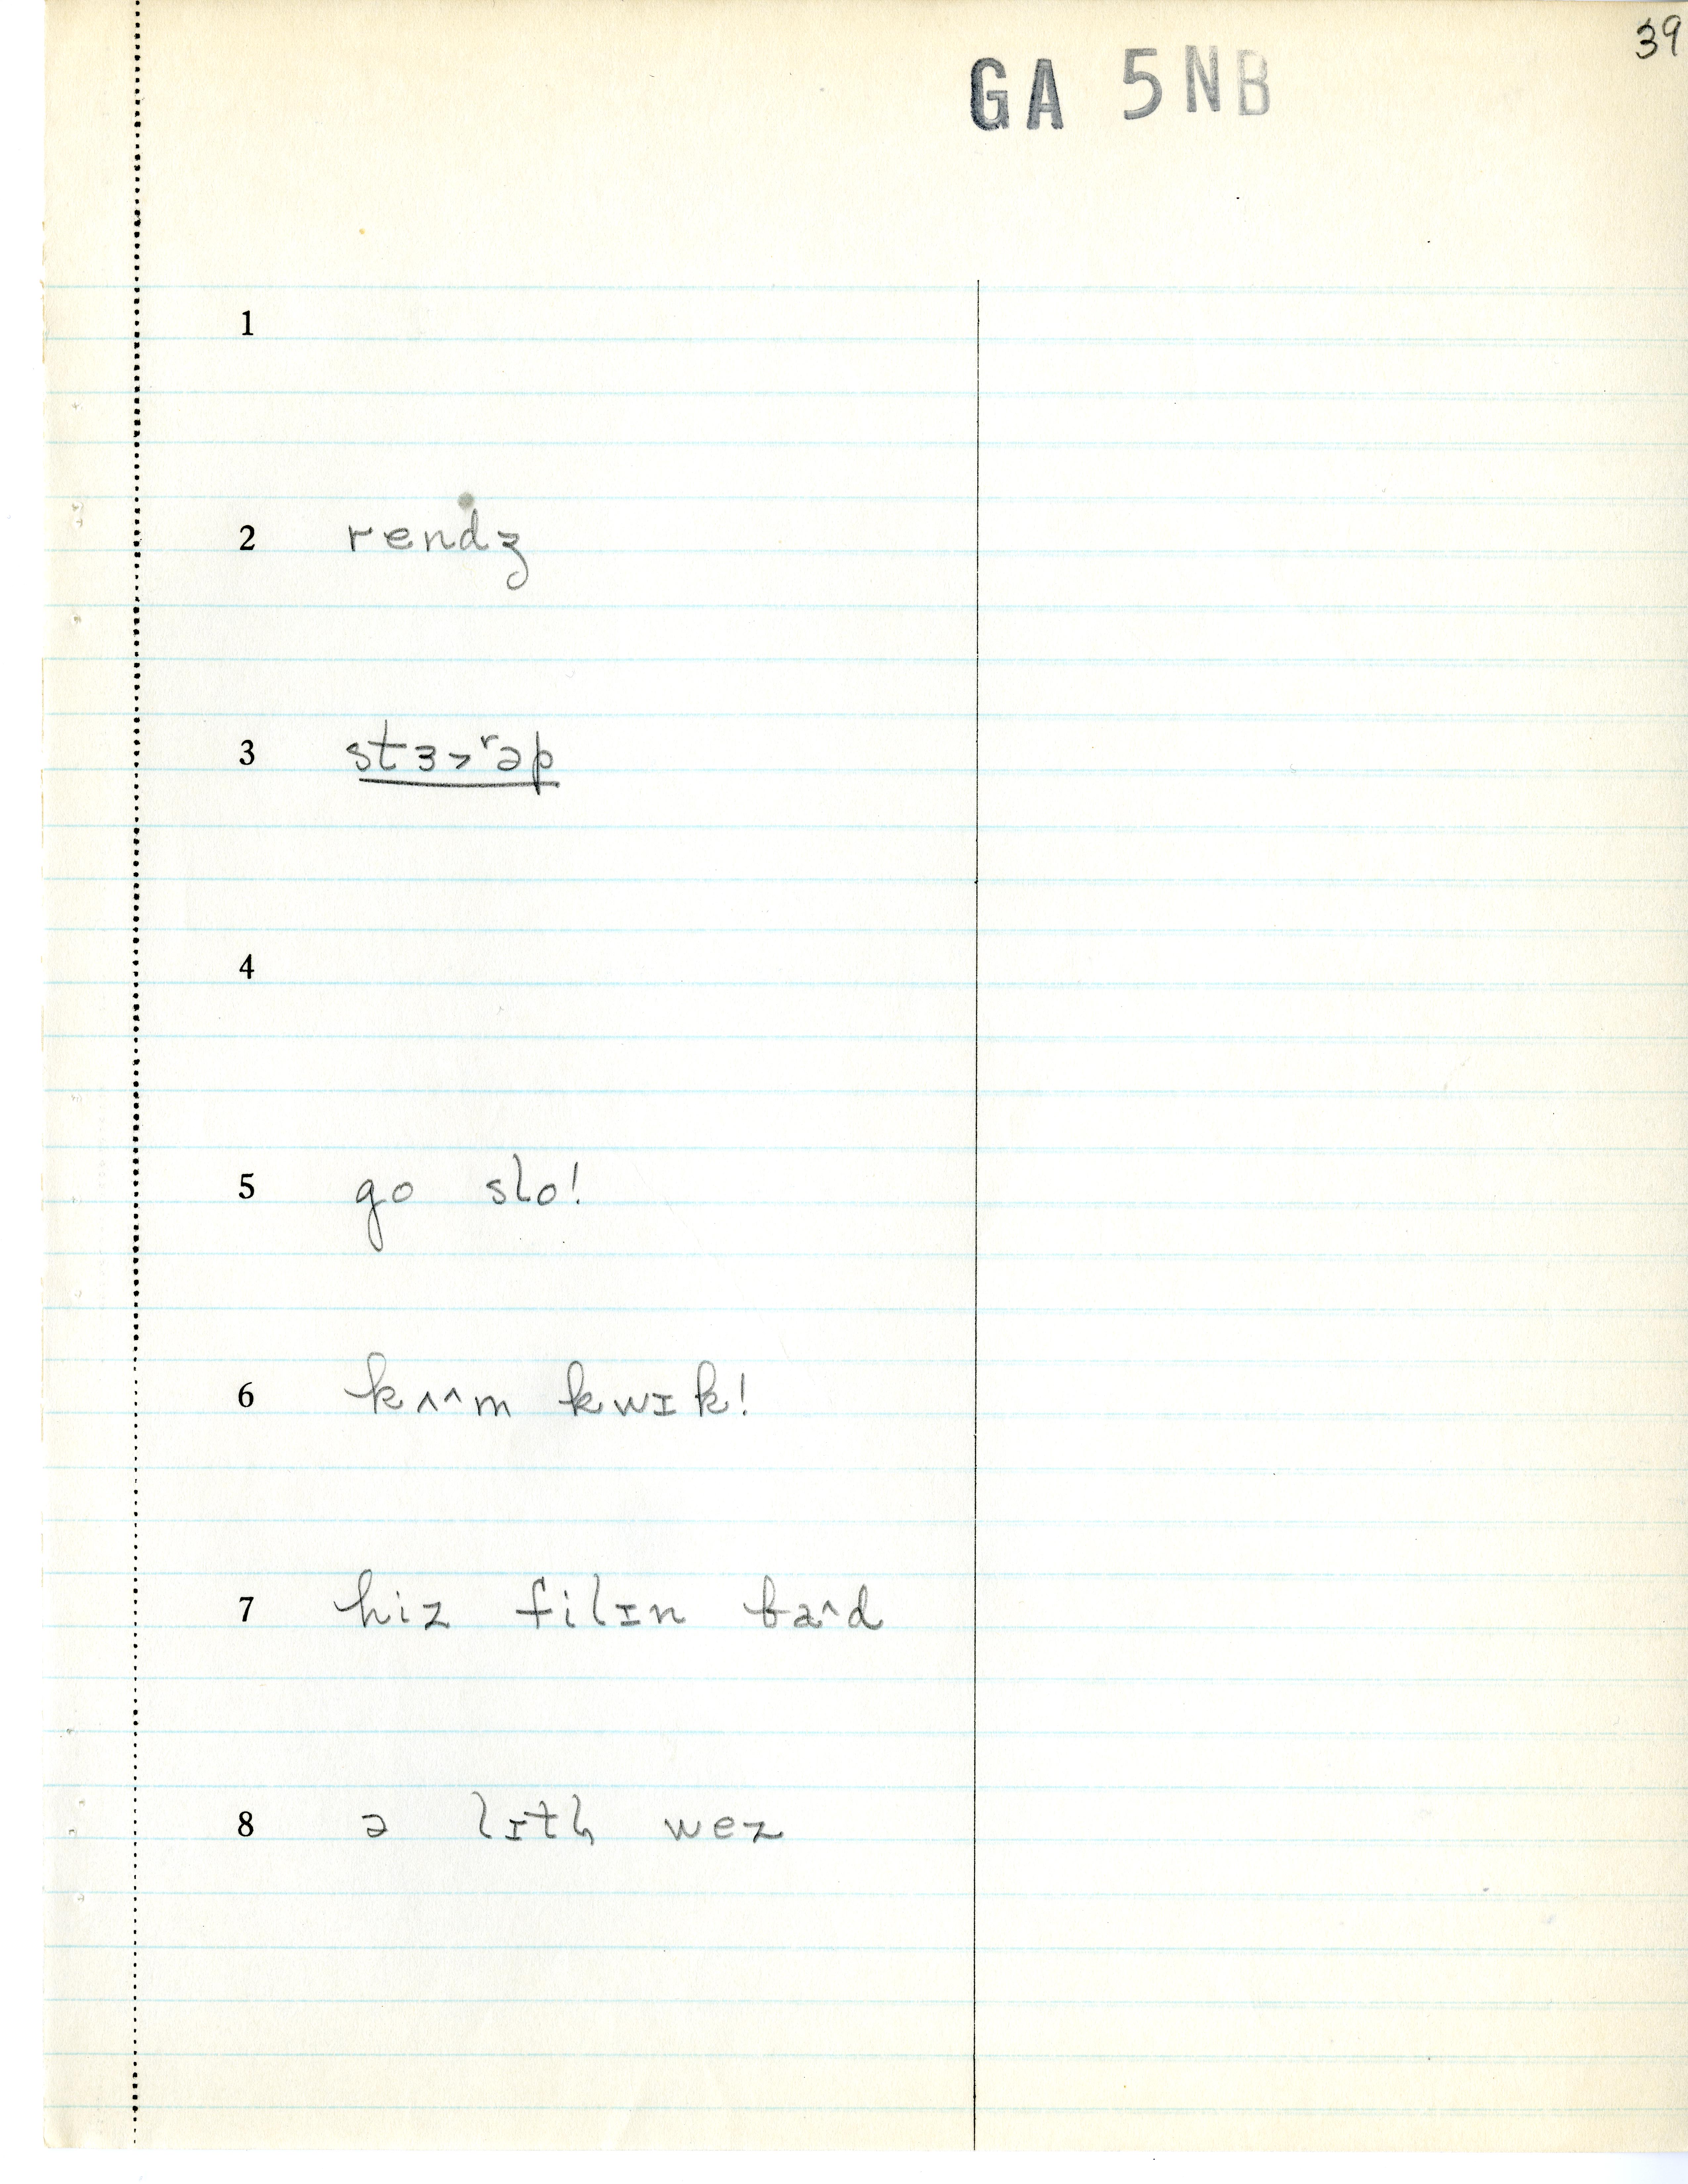 39
GA 5NB
1
2 rendz
3 stɜ˃ʳəp
4
5 go slo!
6 kʌ^m kwɪk!
7 hiz filɪn ba^d
8 ə lɪtl̩ wez